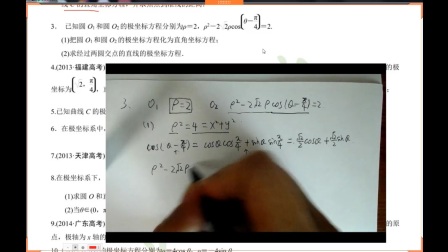 3. 已知圆 O₁ 和圆 O₂ 的极坐标方程分别为ρ=2，ρ²-2 2ρcos(θ-π/4)=2.
(1)把圆 O₁ 和圆 O₂ 的极坐标方程化为直角坐标方程；
(2)求经过两圆交点的直线的极坐标方程.
4.(2013·福建高考)
( 2, π/4),
坐标为
5.已知曲线 C 的极
6.在极坐标系中,
7.(2013·天津高考)
8.在极坐标系下,
(1)求圆 O 和
(2)当
9.(2014·广东高考)
的原
点, 极轴为 x 轴的
3. O₁ ρ=2 O₂ ρ²-2√2ρcos(θ-π/4)=2
(1) ρ²=4=x²+y²
cos(θ-π/4)=cosθcosπ/4+sinθsinπ/4=√2/2cosθ+√2/2sinθ
ρ²-2√2ρ